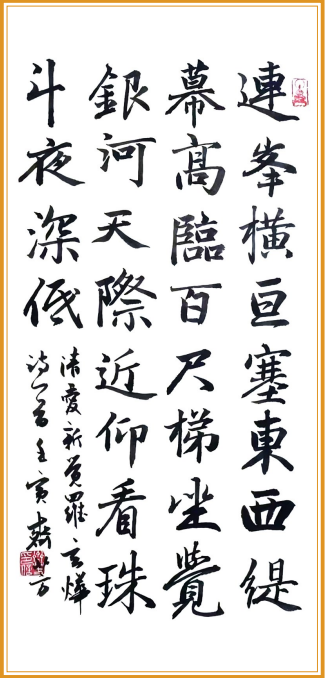 連峯橫亘塞東西緹
幕高臨百尺梯坐覺
銀河天際近仰看珠
斗夜深低
清愛新覺羅玄燁
詩一首壬寅